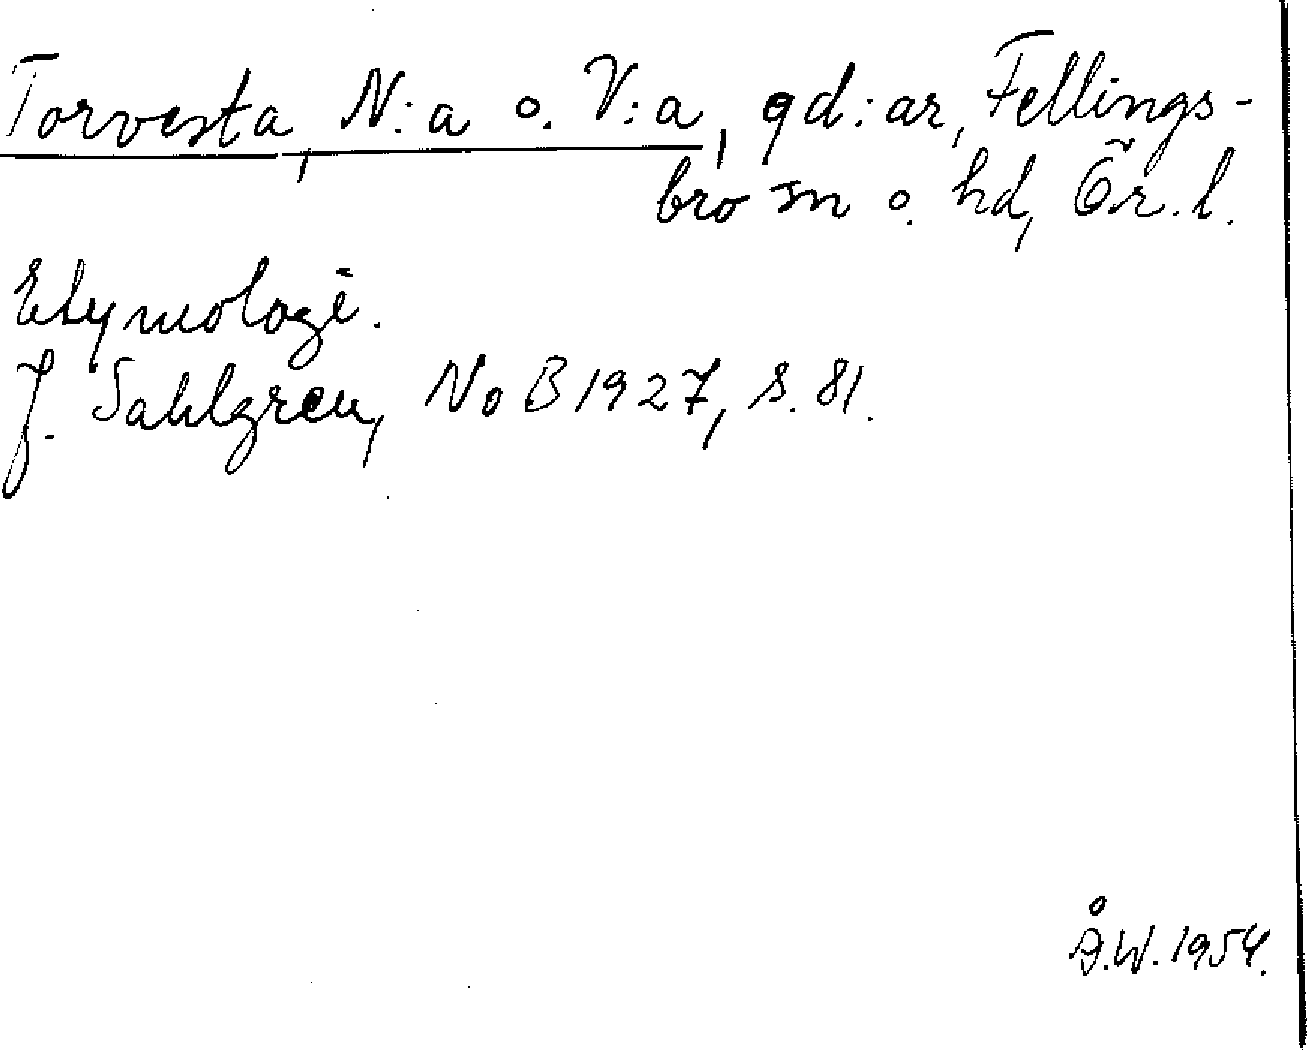 Torvesta, N:a o. V:a, gd:ar, Fellings-
bro sn o. hd, Ör. l.
Etymologi.
J. Sahlgren, NoB 1927, s. 81.
Å.W. 1954.